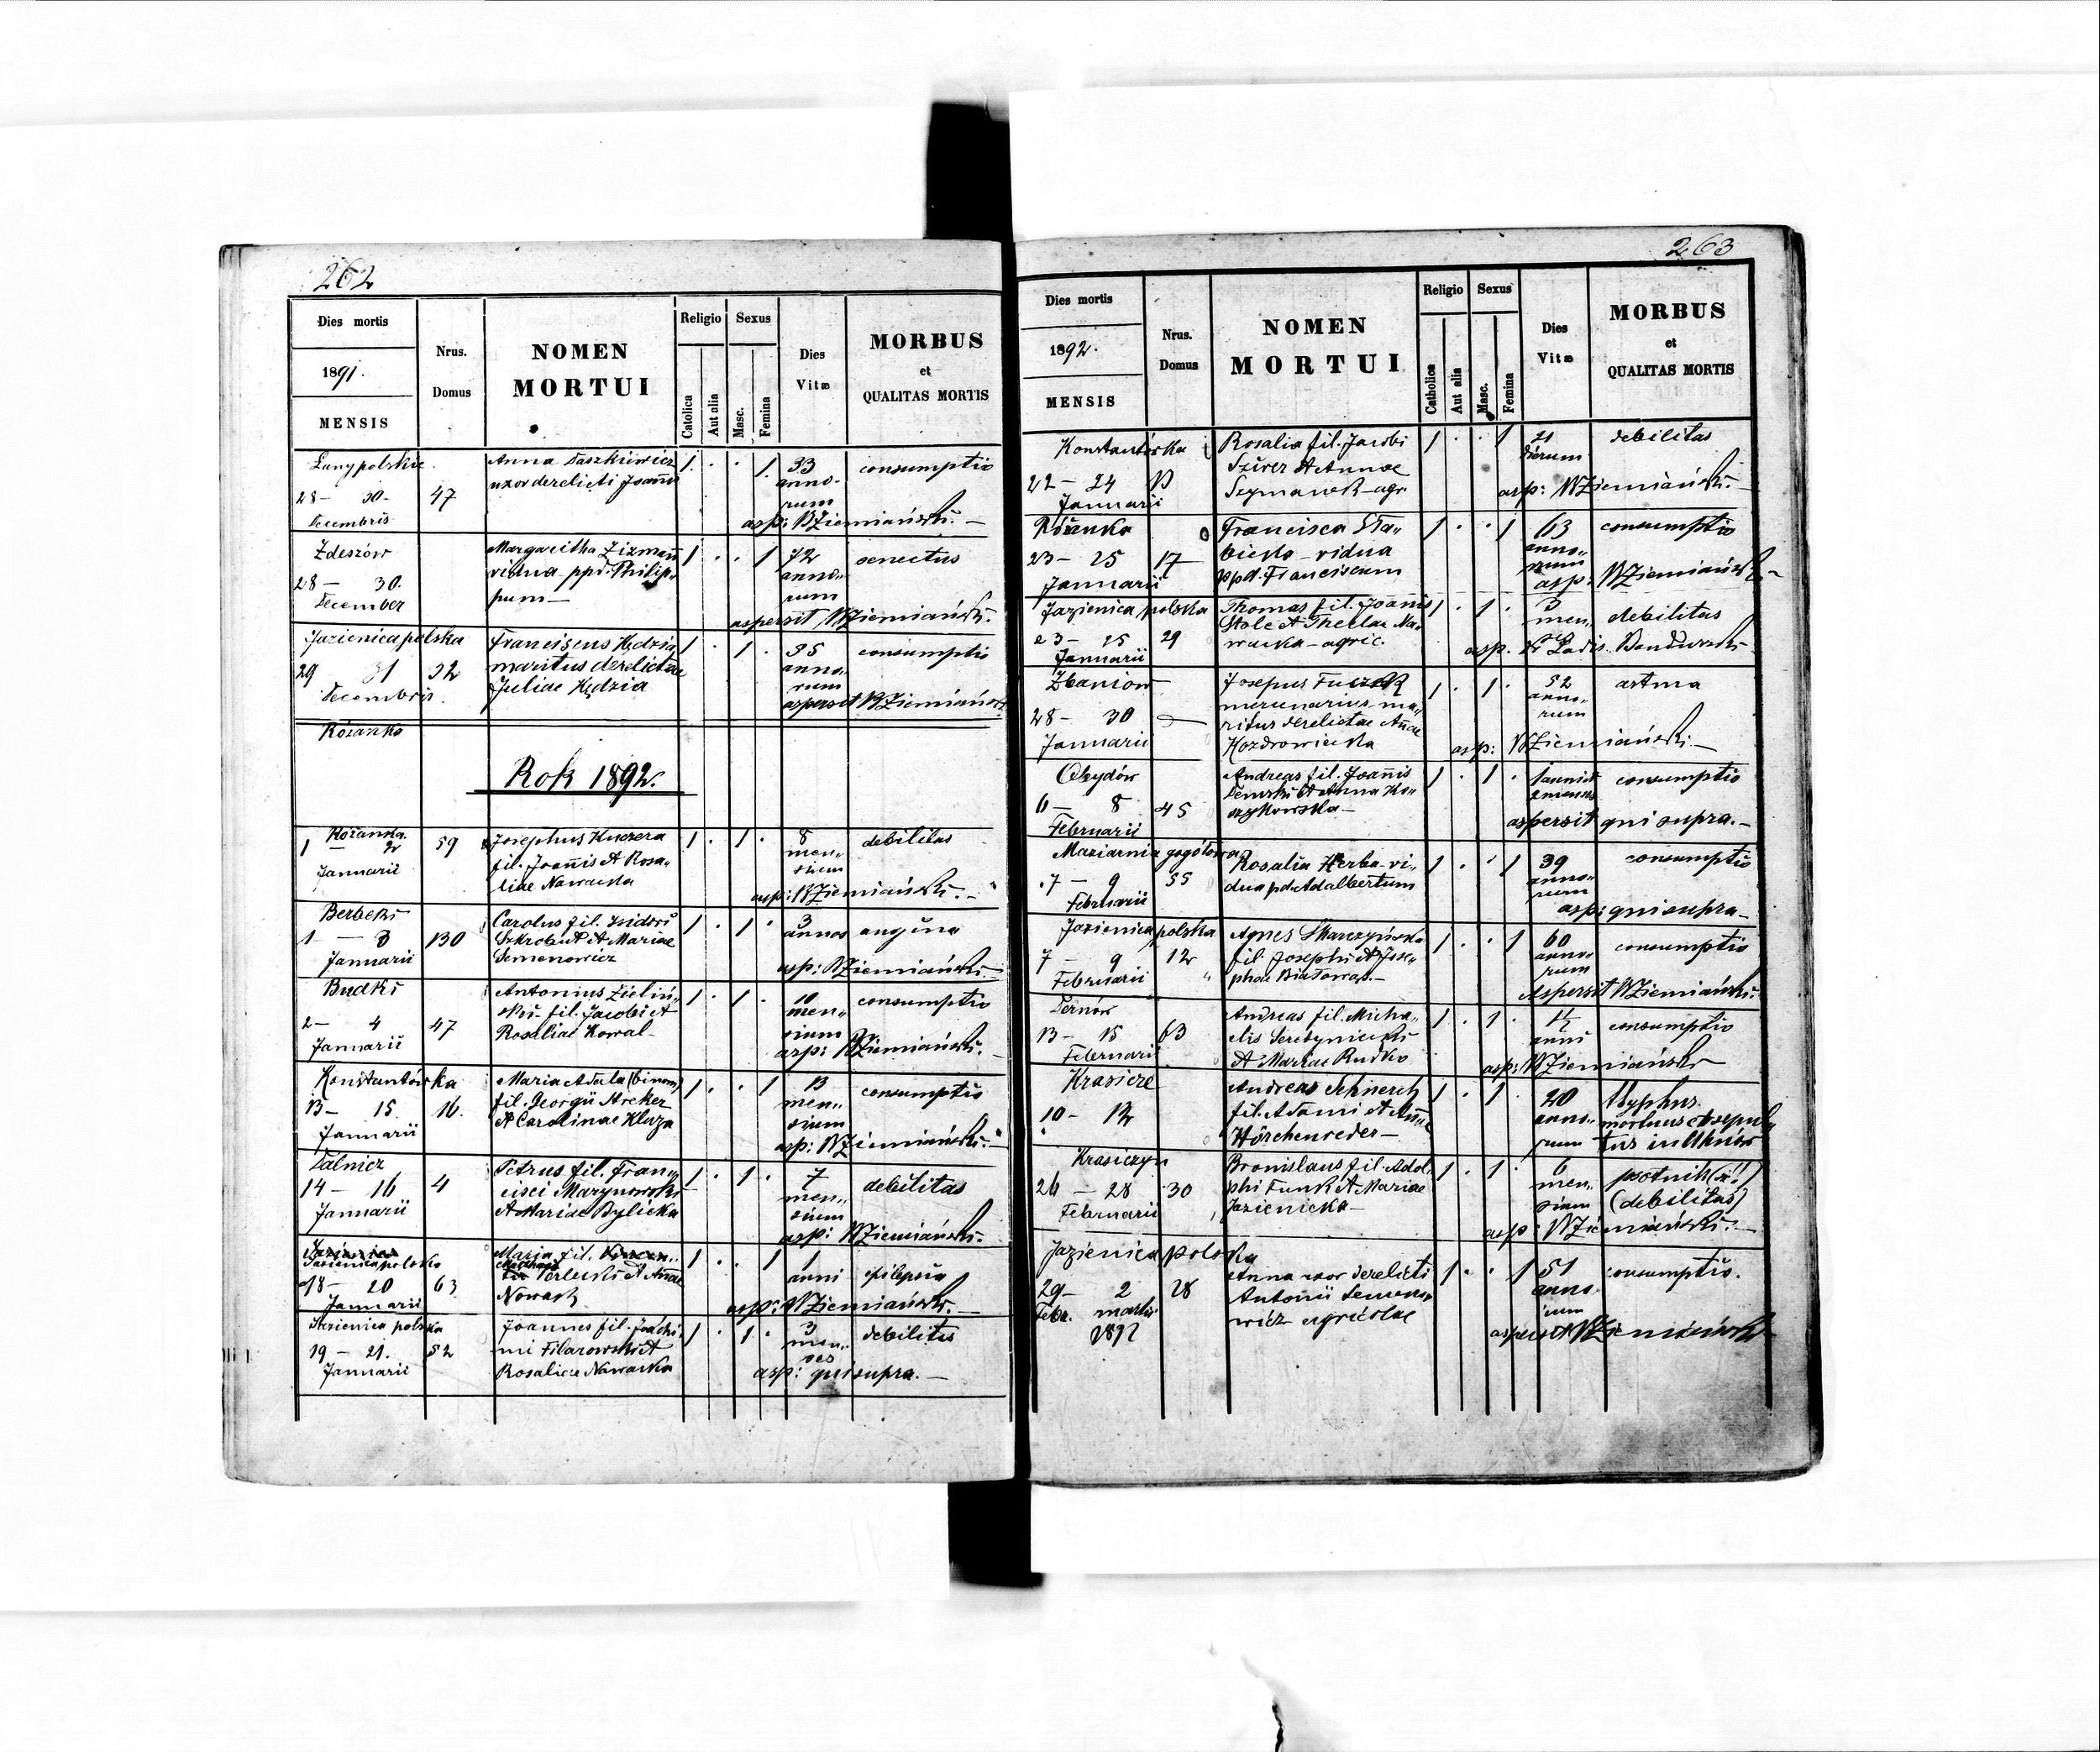 262
Dies mortis
1891.
MENSIS
Nrus.
Domus
NOMEN
MORTUI
Religio
Catolica
Aut alia
Sexus
Masc.
Femina
Dies
Vitæ
MORBUS
et
QUALITAS MORTIS
Łany polskie
28 - 30 -
Decembris
47
Anna Daszkiewicz
uxor derelicti Joannis
1 . . 1
33
anno-
rum
consumptio
asp: WZiemiański. -
Zdeszów
28 - 30.
December
Margaritha
vidua ppd. Philip-
pum -
1 . . 1
72
anno-
rum
senectus
aspersit WZiemiański.
Jazienica polska
29 31
Decembris.
32
Franciscus Kędzia
maritus derelictae
Juliae Kędzia
1 . 1 .
35
anno-
rum
consumptio
aspersit WZiemiański
Różanka
Rok 1892.
Różanka
1 - 2
Januarii
59
Josephus Kuczera
fil. Joannis et Rosa-
liae Nawacka
1 . 1 .
8
men-
sium
debilitas
asp: WZiemiański. -
Berbeki
1 - 3
Januarii
130
Carolus fil. Isidori
et Mariae
Semenowicz
1 . 1 .
3
annos
angina
asp: WZiemiański. -
Budki
2 - 4
Januarii
47
Antonius Zieliń-
ski fil. Jacobi et
Rosaliae Kowal -
1 . 1 .
10
men-
sium
consumptio
asp: WZiemiański. -
Konstantówka
13 - 15.
Januarii
16.
Maria Adela (binom)
fil. Georgii Areker
et Carolinae Kluza
1 . . 1
13
men-
sium
consumptio
asp: WZiemiański. -
14 - 16
Januarii
4
Petrus fil. Fran-
cisci Marynowski
et Mariae Bylicka
1 . 1 .
7
men-
sium
debilitas
asp: WZiemiański.
Jazienica polska
18 - 20
Januarii
63
Maria fil.
et Annae
Nowack
1 . . 1
1
anni
epilepsia
asp: WZiemiański. -
Jazienica polska
19 - 21.
Januarii
52
Joannes fil. Joachi-
mi Filarowski et
Rosaliae Nawacka
1 . 1 .
3
men-
ses
debilitas
asp: qui supra. -
263
Dies mortis
1892.
MENSIS
Nrus.
Domus
NOMEN
MORTUI
Religio
Catholica
Aut alia
Sexus
Masc.
Femina
Dies
Vitæ
MORBUS
et
QUALITAS MORTIS
Konstantówka
22 - 24
Januarii
Rosalia fil. Jacobi
et Annae
Szymanek - agr.
1 . . 1
21
dierum
debilitas
asp: WZiemiański. -
Różanka
23 - 25
Januarii
17
Francisca Sta-
bicka - vidua
ppd. Franciscum
1 . . 1
63
anno-
rum
consumptio
asp: WZiemiański -
Jazienica polska
23 - 25
Januarii
29
Thomas fil. Joannis
Stole et Theclae Na-
wacka - agric.
1 . 1 .
3
men-
debilitas
asp. Ladis.
28 - 30
Januarii
Josepus
mercenarius ma-
ritus derelictae Annae
1 . 1 .
52
anno-
rum
astma
asp: WZiemiański -
Obydów
6 - 8
Februarii
45
Andreas fil. Joannis
et Anna Ko-
szykowska -
1 . 1 .
1 anni et
2 menses
consumptio
aspersit qui supra. -
Maziarnia
7 - 9
Februarii
55
Rosalia Herba - vi-
dua pd. Adalbertum
1 . . 1
39
anno-
rum
consumptio
asp: qui supra -
Jazienica polska
7 - 9
Februarii
12
Agnes Skarczyńska
fil. Josephi et Jose-
phae Białowąs. -
1 . . 1
60
anno-
rum
consumptio
aspersit WZiemiański.
Dernów
13 - 15
Februarii
63
Andreas fil. Micha-
elis
et Mariae Rudko
1 . 1 .
1½
anni
consumptio
asp: WZiemiański
10 - 12
Andreas Schnerch
fil. Adami et Annae
Hörchenreder -
1 . 1 .
20
anno-
rum
typhus.
mortuus et sepul-
tus in Uhnów
Krasiczyn
26 - 28
Februarii
30
Bronislaus fil. Adol-
phi Funk et Mariae
Jazienicka -
1 . 1 .
6
men-
sium
psotnik (x!)
(debilitas)
asp: WZiemiański. -
Jazienica polska
29 - 2
Febr. martii
1892
28
Anna uxor derelicti
Antonii Semeno-
wicz agricolae
1 . . 1
51
anno-
rum
consumptio.
aspersit WZiemiański